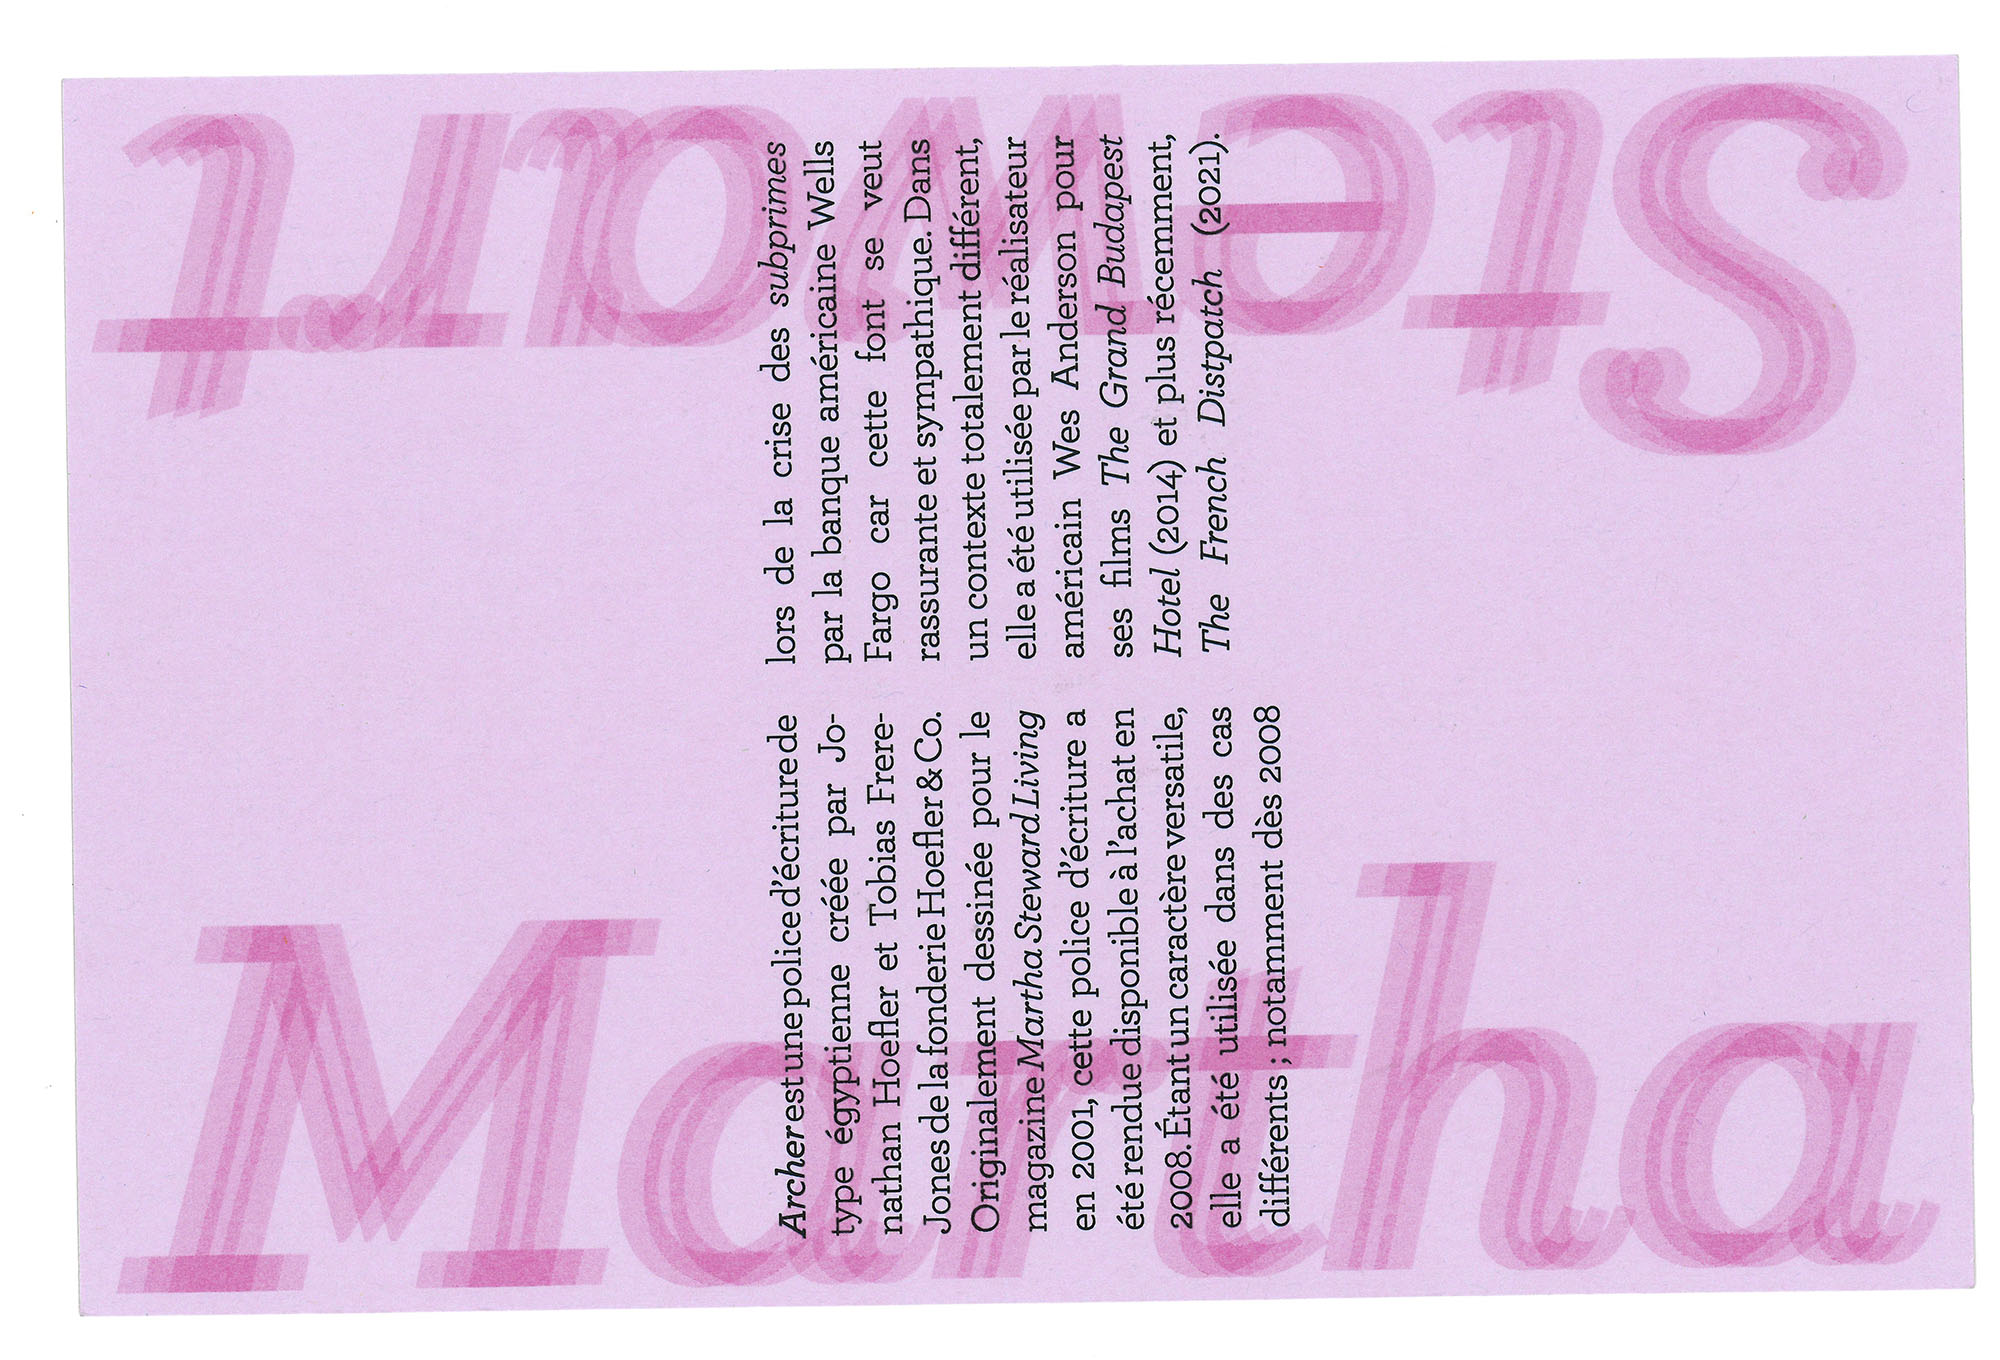 Martha
Stewart
Archer est une police d'écriture de
type égyptienne créée par Jo-
nathan Hoefler et Tobias Frere-
Jones de la fonderie Hoefler & Co.
Originalement dessinée pour le
magazine Martha Steward Living
en 2001, cette police d'écriture a
été rendue disponible à l'achat en
2008. Étant un caractère versatile,
elle a été utilisée dans des cas
différents ; notamment dès 2008
lors de la crise des subprimes
par la banque américaine Wells
Fargo car cette font se veut
rassurante et sympathique. Dans
un contexte totalement différent,
elle a été utilisée par le réalisateur
américain Wes Anderson pour
ses films The Grand Budapest
Hotel (2014) et plus récemment,
The French Distpatch (2021).